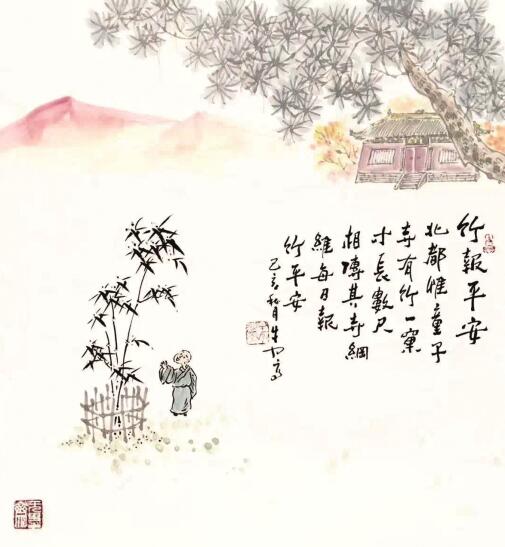 竹報平安
北都惟童子
寺有竹一窠
才長數尺
相傳其寺綱
維每日報
竹平安
己亥秋月